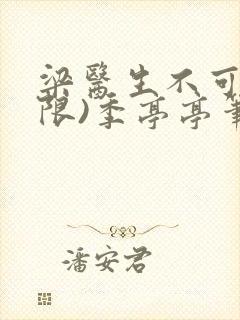 梁醫生不可
限)季亭亭
潘安君